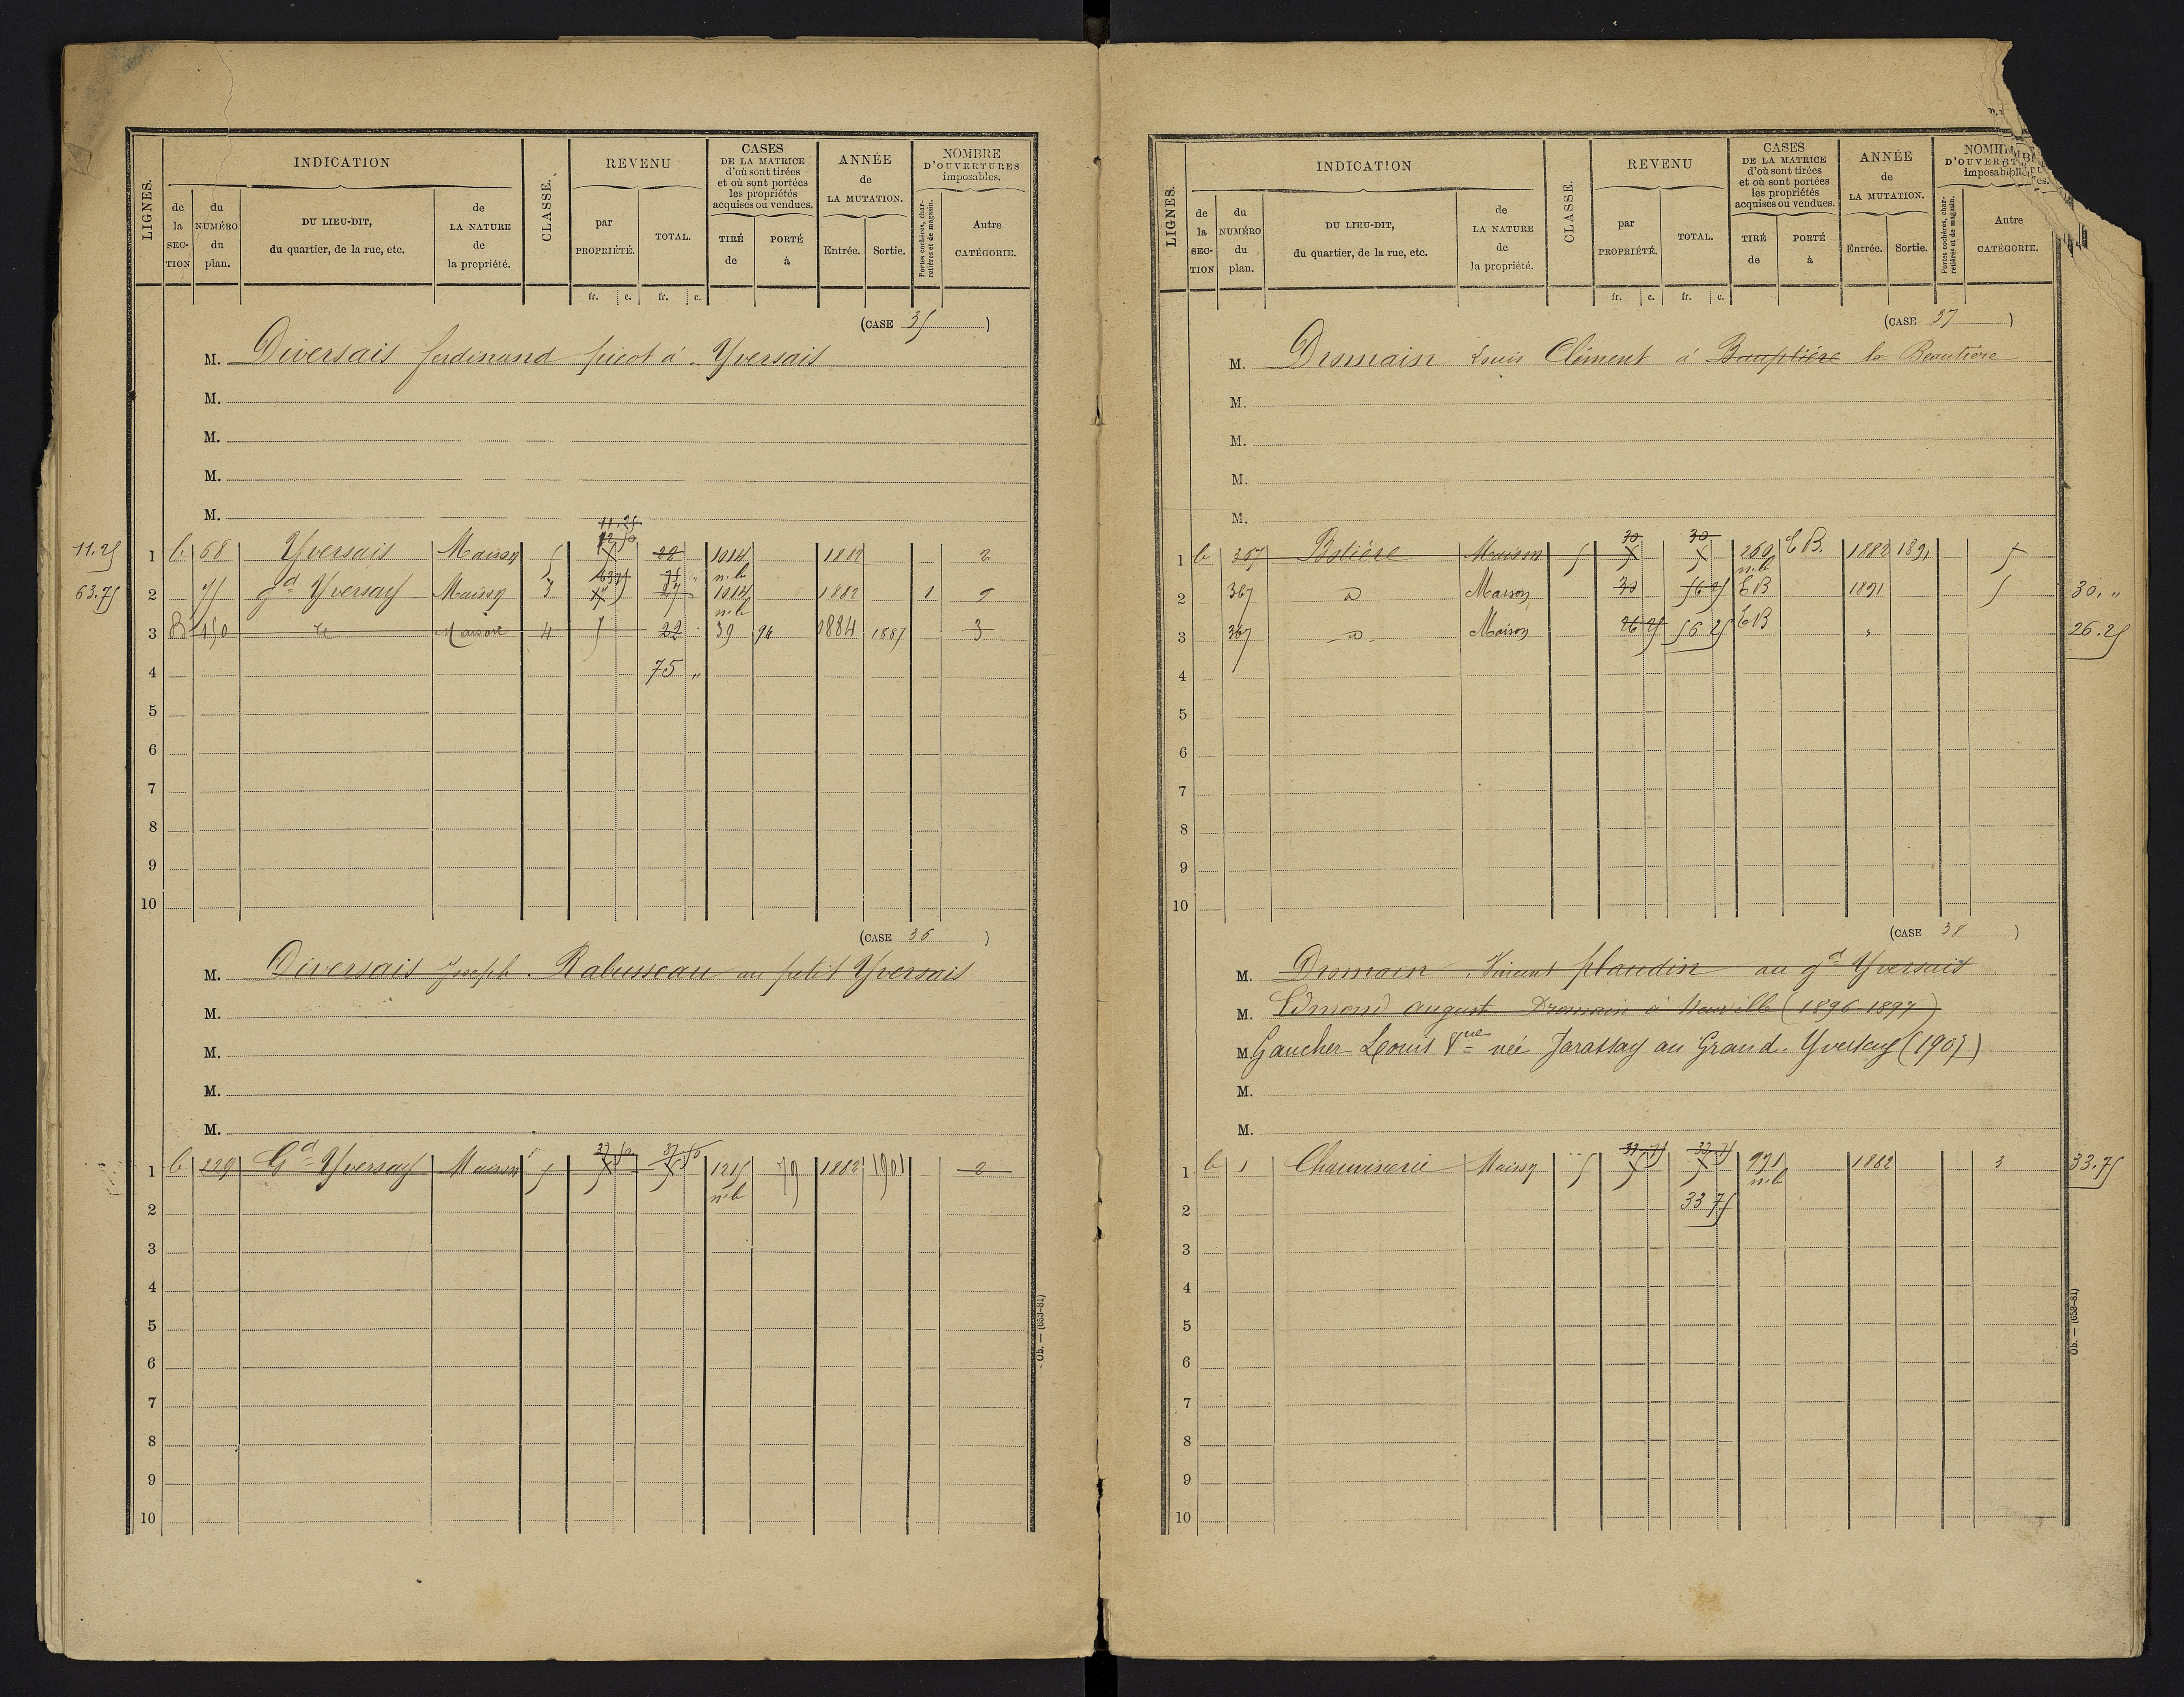 LIGNES. INDICATION CLASSE. REVENU CASES DE LA MATRICE d'où sont tirées et où sont portées les propriétés acquises ou vendues. ANNÉE de LA MUTATION. NOMBRE D'OUVERTURES imposables.
de la SECTION du NUMÉRO du plan. DU LIEU-DIT, du quartier, de la rue, etc. de LA NATURE de la propriété. par PROPRIÉTÉ. TOTAL. TIRÉ de PORTÉ à Entrée. Sortie. Portes cochères, charretières et de magasin. Autre CATÉGORIE.
fr. c. fr. c.
(CASE 35 )
M. Diversais ferdinand picot à Yversais
M.
M.
M.
M.
11.25
11.25 1 b 68 Yversais Maison 5 12 50 22 1014 1882 2
n.b
63.75 2 75 gd Yversay Maison 3 63 75 75 " 1014 1882 1 5
n.b
3 B 450 Maison 4 5 22 39 94 1884 1887 3
4 75 "
5
6
7
8
9
10
(CASE 36 )
M. Diversais Joseph Rabusseau au petit Yversais
M.
M.
M.
M.
37 50 37 50
1 b 229 Gd Yversay Maison 5 5 5 1215 79 1882 1901 2
n.b
2
3
4
5
6
7
8
9
10
Ob. — (653-81)
LIGNES. INDICATION CLASSE. REVENU CASES DE LA MATRICE d'où sont tirées et où sont portées les propriétés acquises ou vendues. ANNÉE de LA MUTATION.
de la SECTION du NUMÉRO du plan. DU LIEU-DIT, du quartier, de la rue, etc. de LA NATURE de la propriété. par PROPRIÉTÉ. TOTAL. TIRÉ de PORTÉ à Entrée. Sortie. Portes cochères, charretières et de magasin. Autre CATÉGORIE.
fr. c. fr. c.
(CASE 37 )
M. Dromain Louis Clément à Bauptiére la Beautiére
M.
M.
M.
M.
30 30
1 b 367 Botiére Maison 5 5 5 260 E B. 1882 1891 5
n.b
2 367 d Maison 30 56 25 E B 1891 5 30. "
3 367 d Maison 26 25 56 25 E B " 26.25
4
5
6
7
8
9
10
(CASE 38 )
M. Dromain Vincent plaudin au gd Yversais
M. Edmond august Dromain à Neuville (1896-1897)
M. Gaucher Louis Vve née Jarassay au Grand. Yversay (1907)
M.
M.
33 75 33 75
1 b 1 Chauvinerie Maison 5 5 5 991 1882 3 33.75
n.b
2 33 75
3
4
5
6
7
8
9
10
Ob. — (653-81)